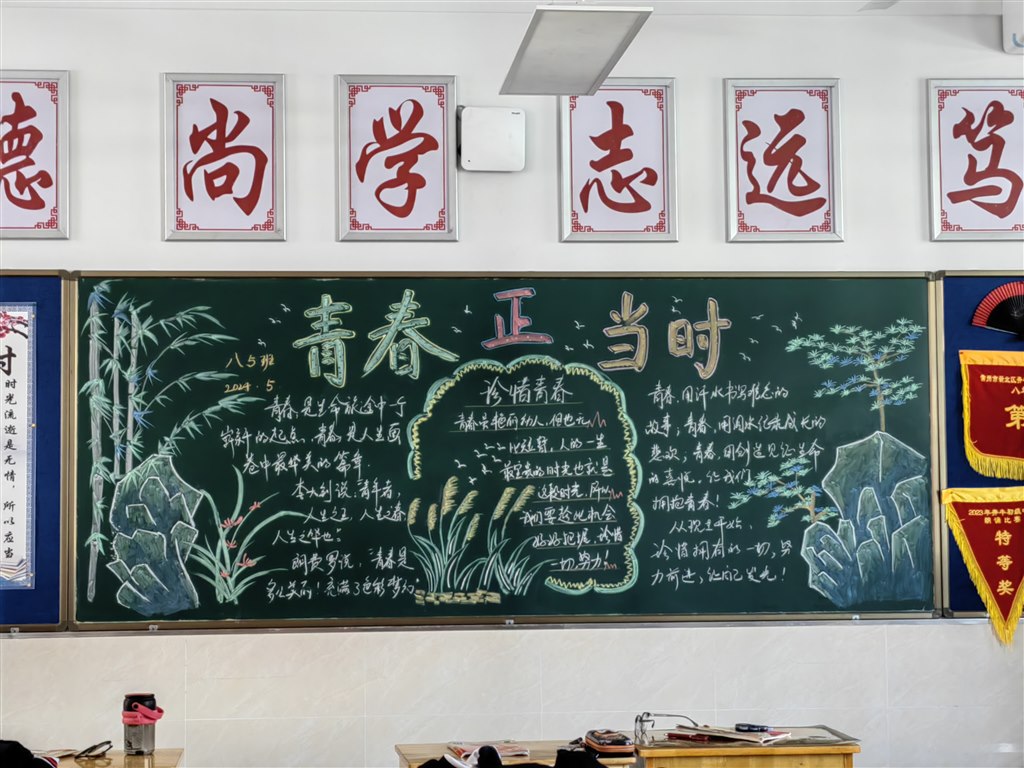 德 尚 学 志 远 笃
青春正当时
八5班
2024.5
青春,是生命旅途中一个
崭新的起点,青春,是人生画
卷中最华美的篇章.
李大钊说:"青年者,
人生之王,人生之春,
人生之华也。"
朗费罗说:"青春是
多么美丽!充满了色彩梦幻"
珍惜青春
青春是艳丽动人,但也元
比短暂,人的一生
最宝贵的时光也就是
这段时光,所以
我们要趁此机会
好好把握,珍惜
一切,努力!
青春,用汗水书写难忘的
故事,青春,用雨水化成成长的
悲欢,青春,用创造见证生命
的喜悦,让我们
拥抱青春!
从现在开始,
珍惜拥有的一切,努
力前进,让自己发光!
时光流逝是无情,所以应当
第
2023年
朗诵比赛
特等奖